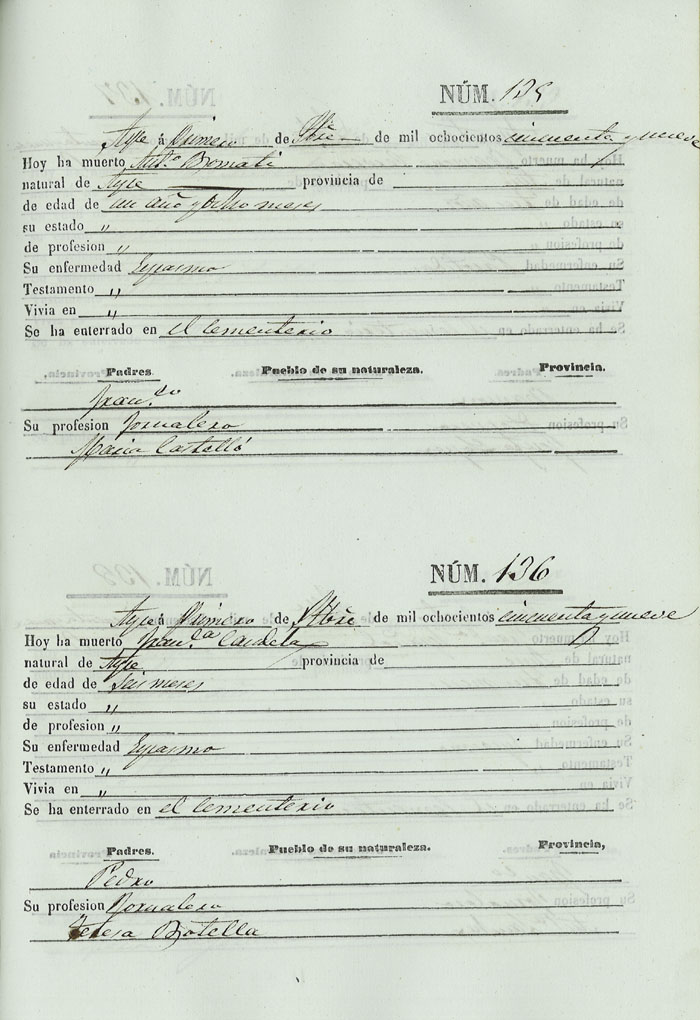 NÚM. 135
Aspe á Primero de Stbre de mil ochocientos cincuenta y nueve
Hoy ha muerto Ant.º Bonati
natural de Aspe provincia de
de edad de un año y ocho meses
su estado "
de profesion "
Su enfermedad Espasmo
Testamento "
Vivia en "
Se ha enterrado en el Cementerio
Padres. Pueblo de su naturaleza. Provincia.
Fran.co
Su profesion Jornalero
Maria Castelló
NÚM. 136
Aspe á Primero de Stbre de mil ochocientos cincuenta y nueve
Hoy ha muerto Fran.ca Candela
natural de Aspe provincia de
de edad de Seis meses
su estado "
de profesion "
Su enfermedad Espasmo
Testamento "
Vivia en "
Se ha enterrado en el Cementerio
Padres. Pueblo de su naturaleza. Provincia,
Pedro
Su profesion Jornalero
Teresa Botella